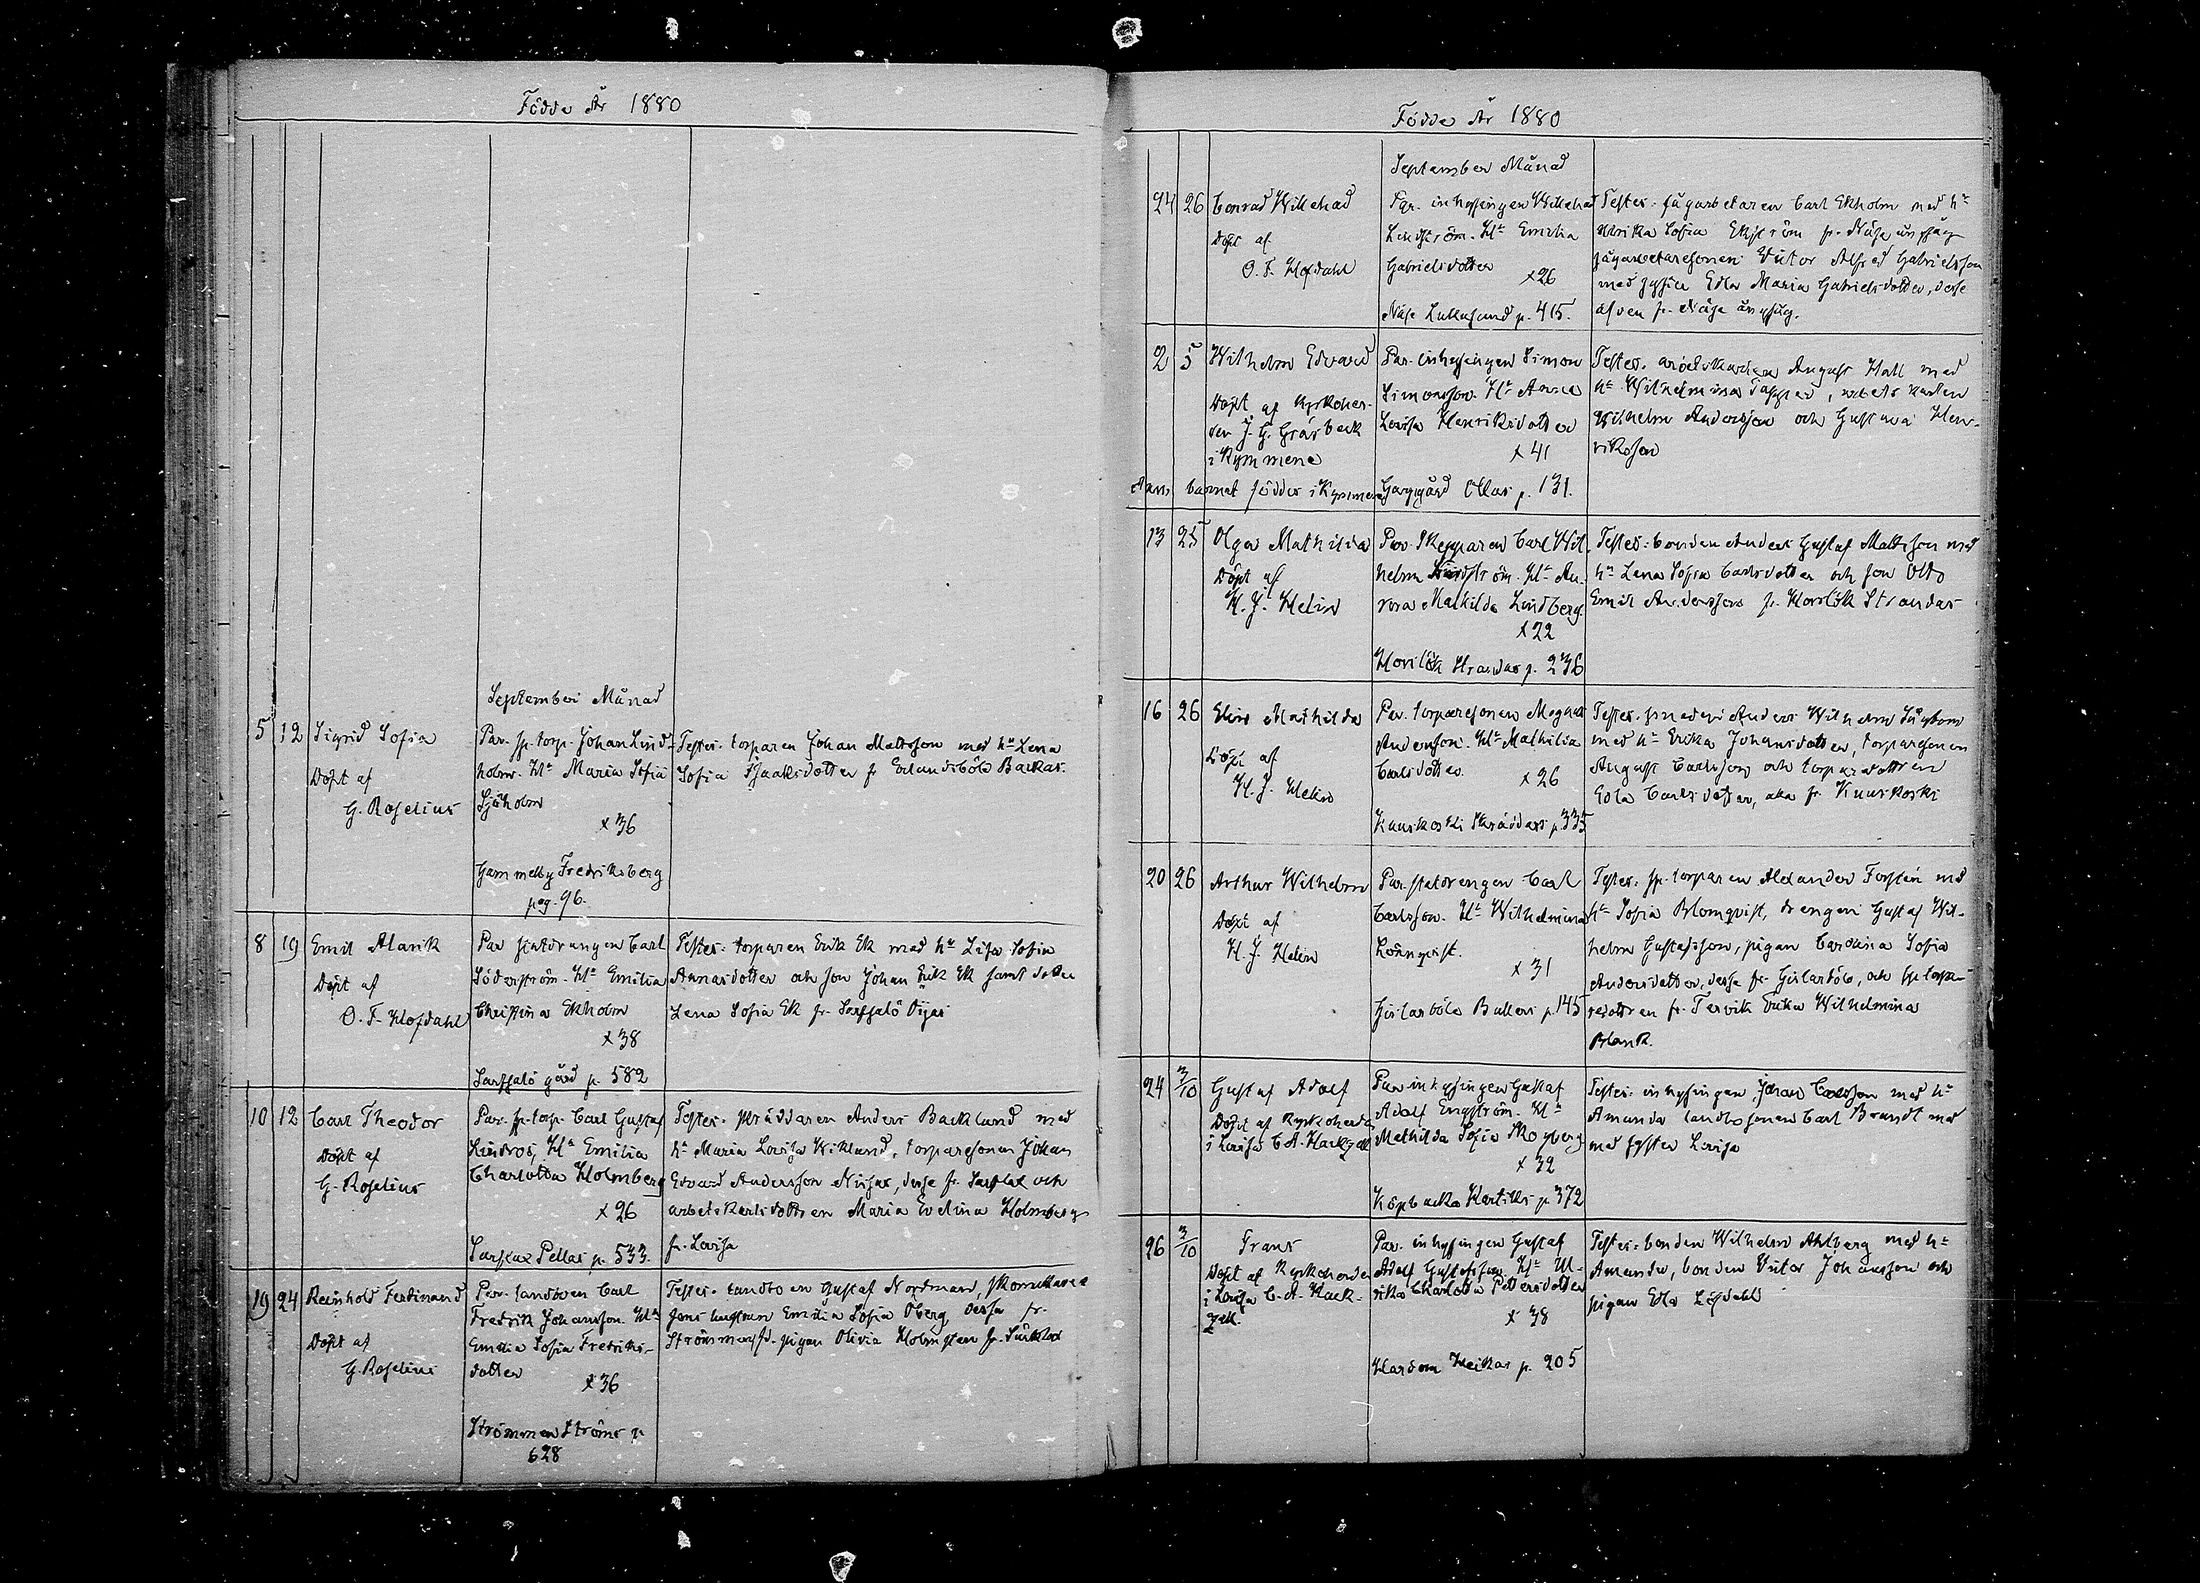 Födde År 1880
September Månad
5 12 Sigrid Sofia
Döpt af
G. Roselius
Par. sp. torp. Johan Lind-
holm. H:u Maria Sofia
Sjöholm
x 36
Gammelby Fredriksberg
pag. 96.
Testes. torparen Johan Mattsson med h:u Lena
Sofia Isaaksdotter fr. Erlandsböle Backas.
8 19 Emil Alarik
Döpt af
O. F. Hofdahl
Par statdrengen Carl
Söderström. H:u Emilia
Christina Ekholm
x 38
Sarfsalö gård p. 582
Testes. torparen Erik Ek med h:u Lisa Sofia
Annasdotter och son Johan Erik Ek samt dotter
Lena Sofia Ek fr. Sarfsalö
10 12 Carl Theodor
Döpt af
G. Roselius
Par. sp. torp. Carl Gustaf
Lindros, H:u Emilia
Charlotta Holmberg
x 26
Sarflax Pellas p. 533.
Testes. skräddaren Anders Backlund med
h:u Maria Lovisa Wiklund, torparesonen Johan
Edvard Andersson Nissas, desse fr. Sarflax och
arbetskarlsdottren Maria Evelina Holmberg
fr. Lovisa
19 24 Reinhold Ferdinand
Döpt af
G. Roselius
Par. landboen Carl
Fredrik Johansson. H:u
Emilia Sofia Fredriks-
dotter
x 36
Strömmen Ströms p.
628
Testes. landboen Gustaf Nordman,
Emilia Sofia Öberg dessa fr.
pigan Olivia Holmsten fr.
Födde År 1880
September Månad
24 26 Conrad Willehad
Döpt af
O. F. Hofdahl
Par. inhysingen Willehad
Lindström. H:u Emilia
Gabrielsdotter
x 26
Näse Lukkasund p. 415.
Testes. sågarbetaren Carl Ekholm med h:u
Ulrika Sofia Ekström fr. Näse ångsåg
sågarbetaresonen Victor Alfred Gabrielsson
med syster Edla Maria Gabrielsdotter, desse
äfven fr. Näse ångsåg.
2 5 Wilhelm Edvard
Döpt af Kyrkoher-
den J. G. Gråsbeck
i Kymmene
Anm. barnet föddes i Kymmene
Par. inhysingen Simon
Simonsson. H:u Anna
Lovisa Henriksdotter
x 41
Garpgård Ollas p. 131.
Testes. arbetskarlen August Hall med
h:u Wilhelmina Tapper, arbetskarlen
Wilhelm Andersson och Gustava Hen-
riksson
13 25 Olga Mathilda
Döpt af
H. J. Helin
Par. Skepparen Carl Wil-
helm Lindström. H:u Au-
rora Mathilda Lindberg
x 22
Horslök Strandas p. 236
Testes. bonden Anders Gustaf Mattsson med
h:u Lena Sofia Carlsdotter och son Otto
Emil Andersson fr. Horslök Strandas
16 26 Elin Mathilda
Döpt af
H. J. Helin
Par. torparesonen Magnus
Andersson. H:u Mathilda
Carlsdotter
x 26
Kuuskoski Skräddars p. 335
Testes. smeden Anders Wilhelm
med h:u Erika Johansdotter, torparesonen
August Carlsson och torparedottren
Edla Carlsdotter, alla fr. Kuuskoski
20 26 Arthur Wilhelm
Döpt af
H. J. Helin
Par. statdrengen Carl
Carlsson. H:u Wilhelmina
Lönnqvist.
x 31
Gislarböle Ballers p. 145
Testes: sp. torparen Alexander Forsten med
h:u Sofia Blomqvist, drengen Gustaf Wil-
helm Gustafsson, pigan Carolina Sofia
Andersdotter, desse fr. Gislarböle, och sp. torpa-
redottren fr. Tervik Erika Wilhelmina
Blank.
24 3/10 Gustaf Adolf
Döpt af Kyrkoherden
i Lovisa C. A. Hackzell
Par inhysingen Gustaf
Adolf Engström. H:u
Mathilda Sofia Skogberg
x 32
Köpbacka Karttiks p. 372
Testes. inhysingen Johan Carlsson med h:u
Amanda landbosonen Carl Brandt med
med syster Lovisa
26 3/10 Frans
Döpt af Kyrkoherden
i Lovisa C. A. Hack-
zell.
Par. inhysingen Gustaf
Adolf Gustafsson H:u Ul-
rika Charlotta Pettersdotter
x 38
Hardom Heikas p. 205
Testes. bonden Wilhelm Ahlberg med h:u
Amanda, bonden Victor Johansson och
pigan Edla Löfdahl